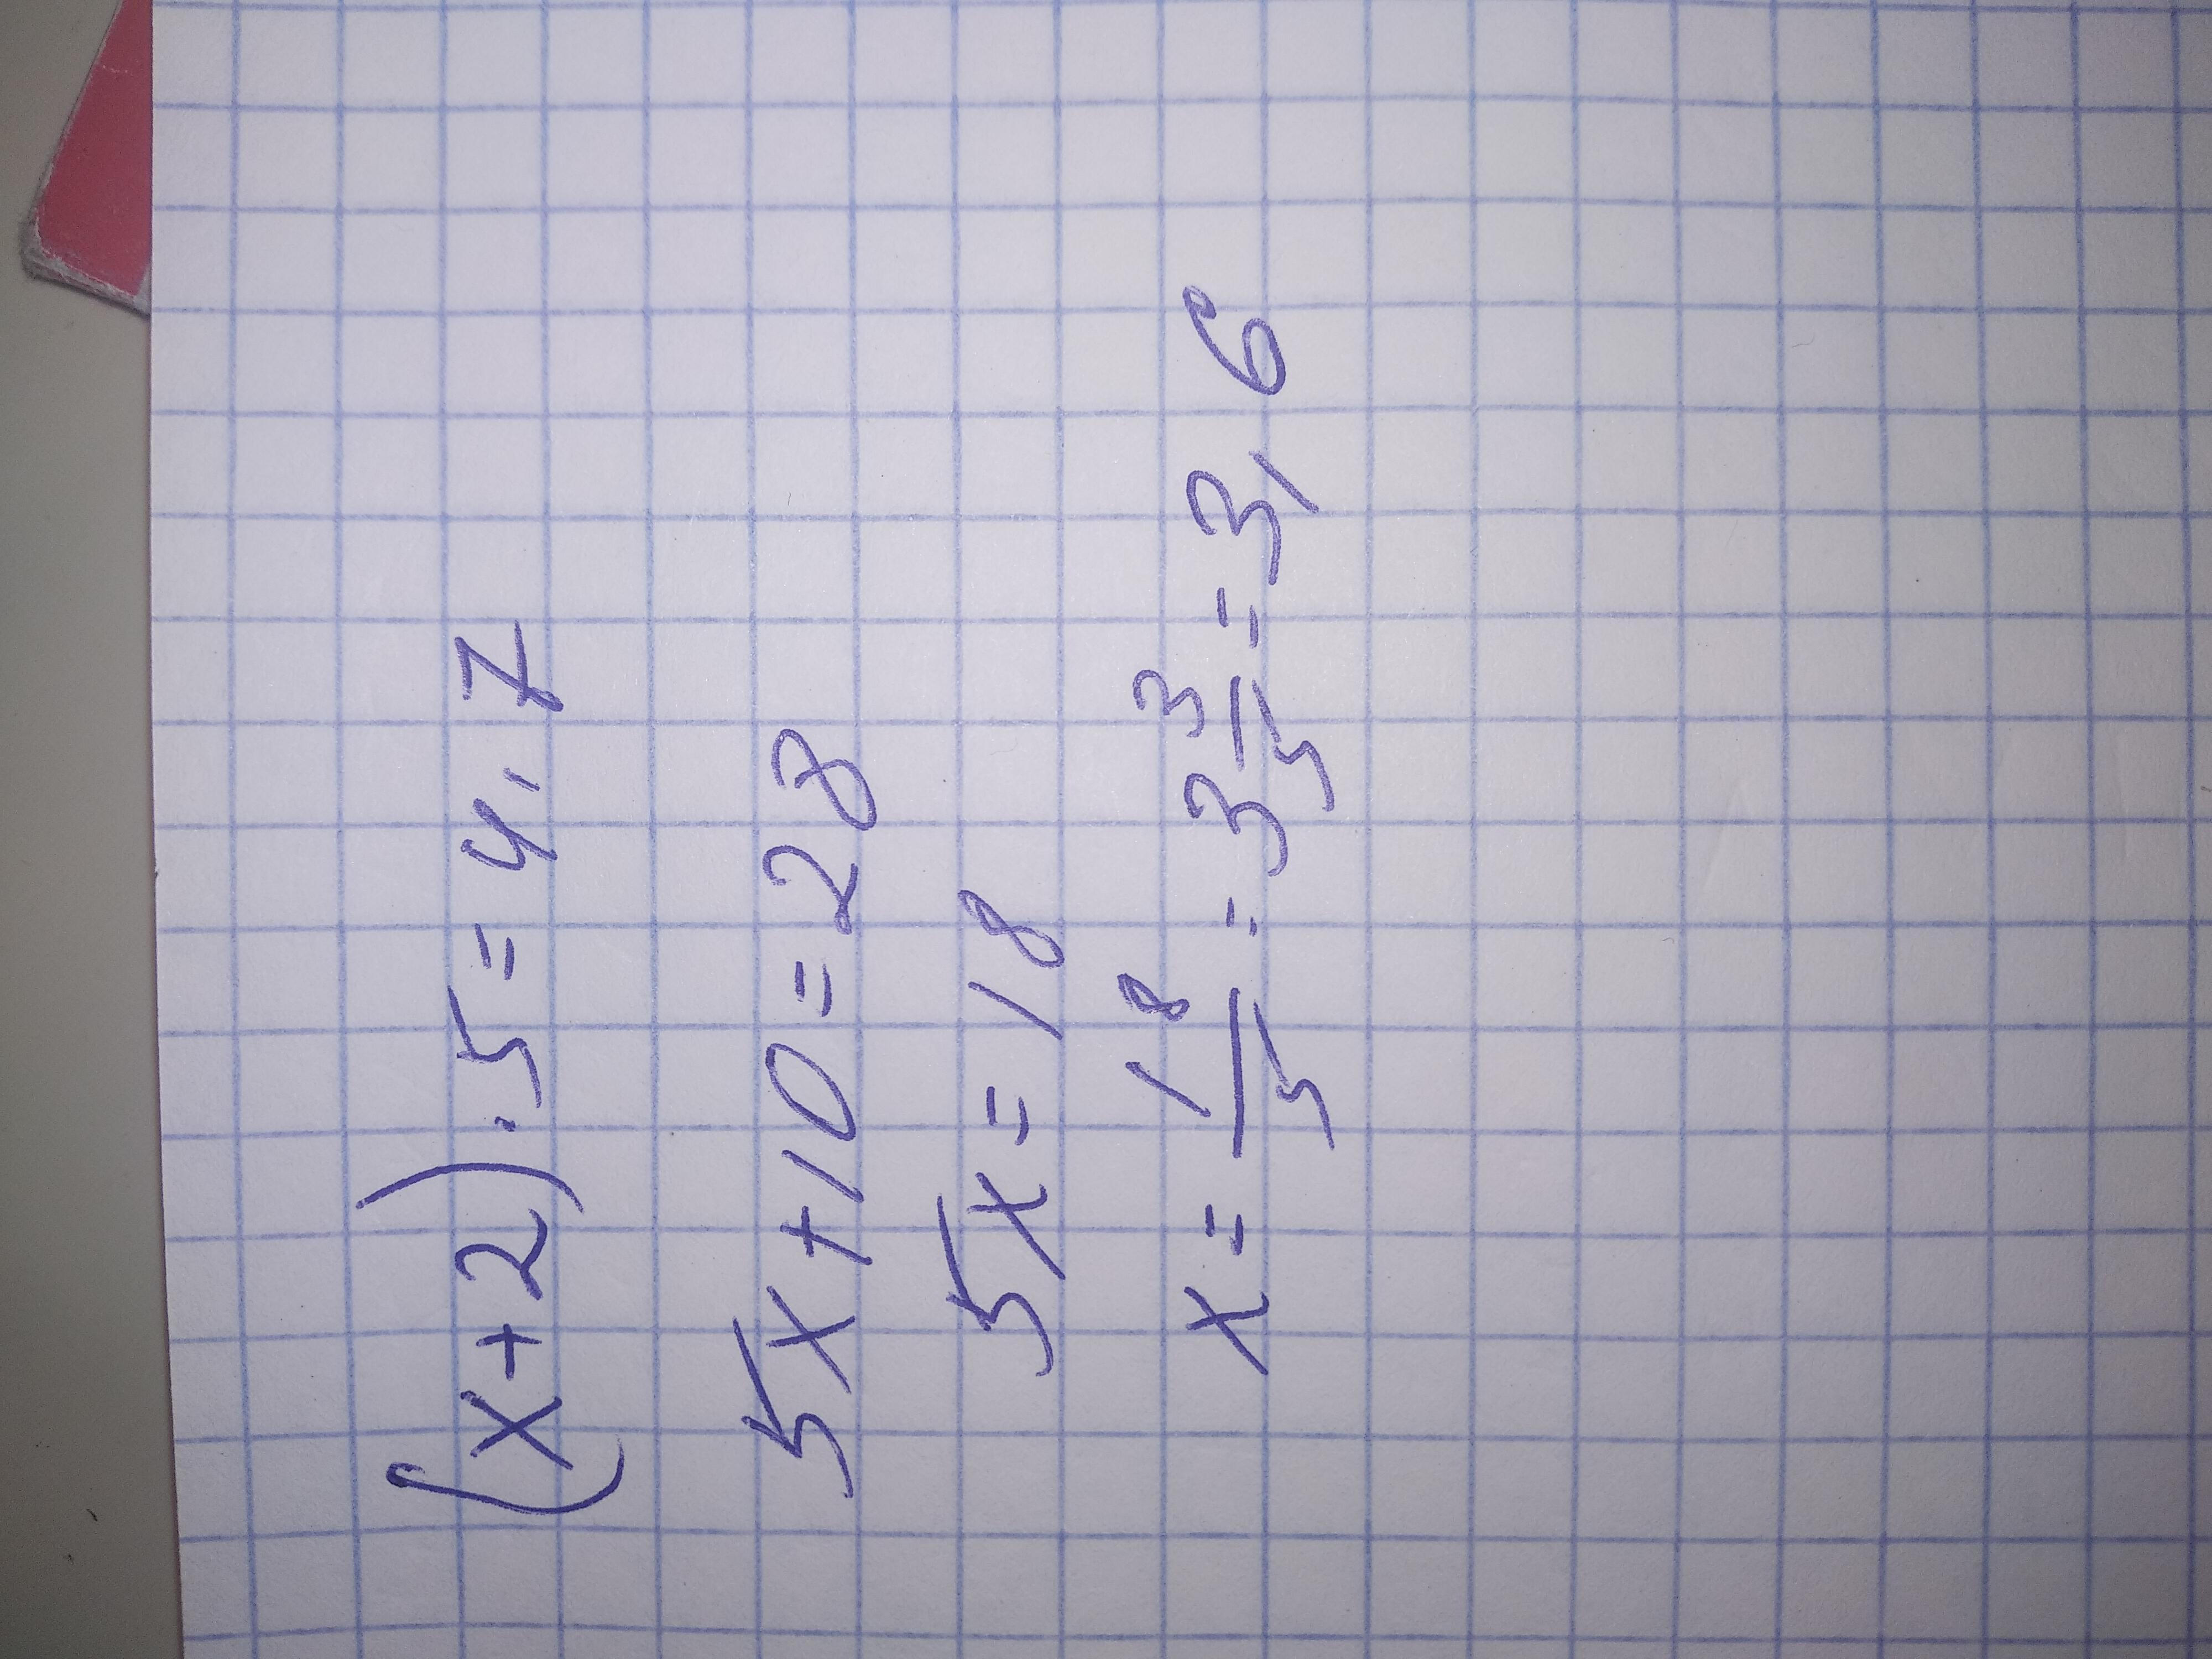 (x+2)·5=4·7
5x+10=28
5x=18
x=18/5=3 3/5=3,6